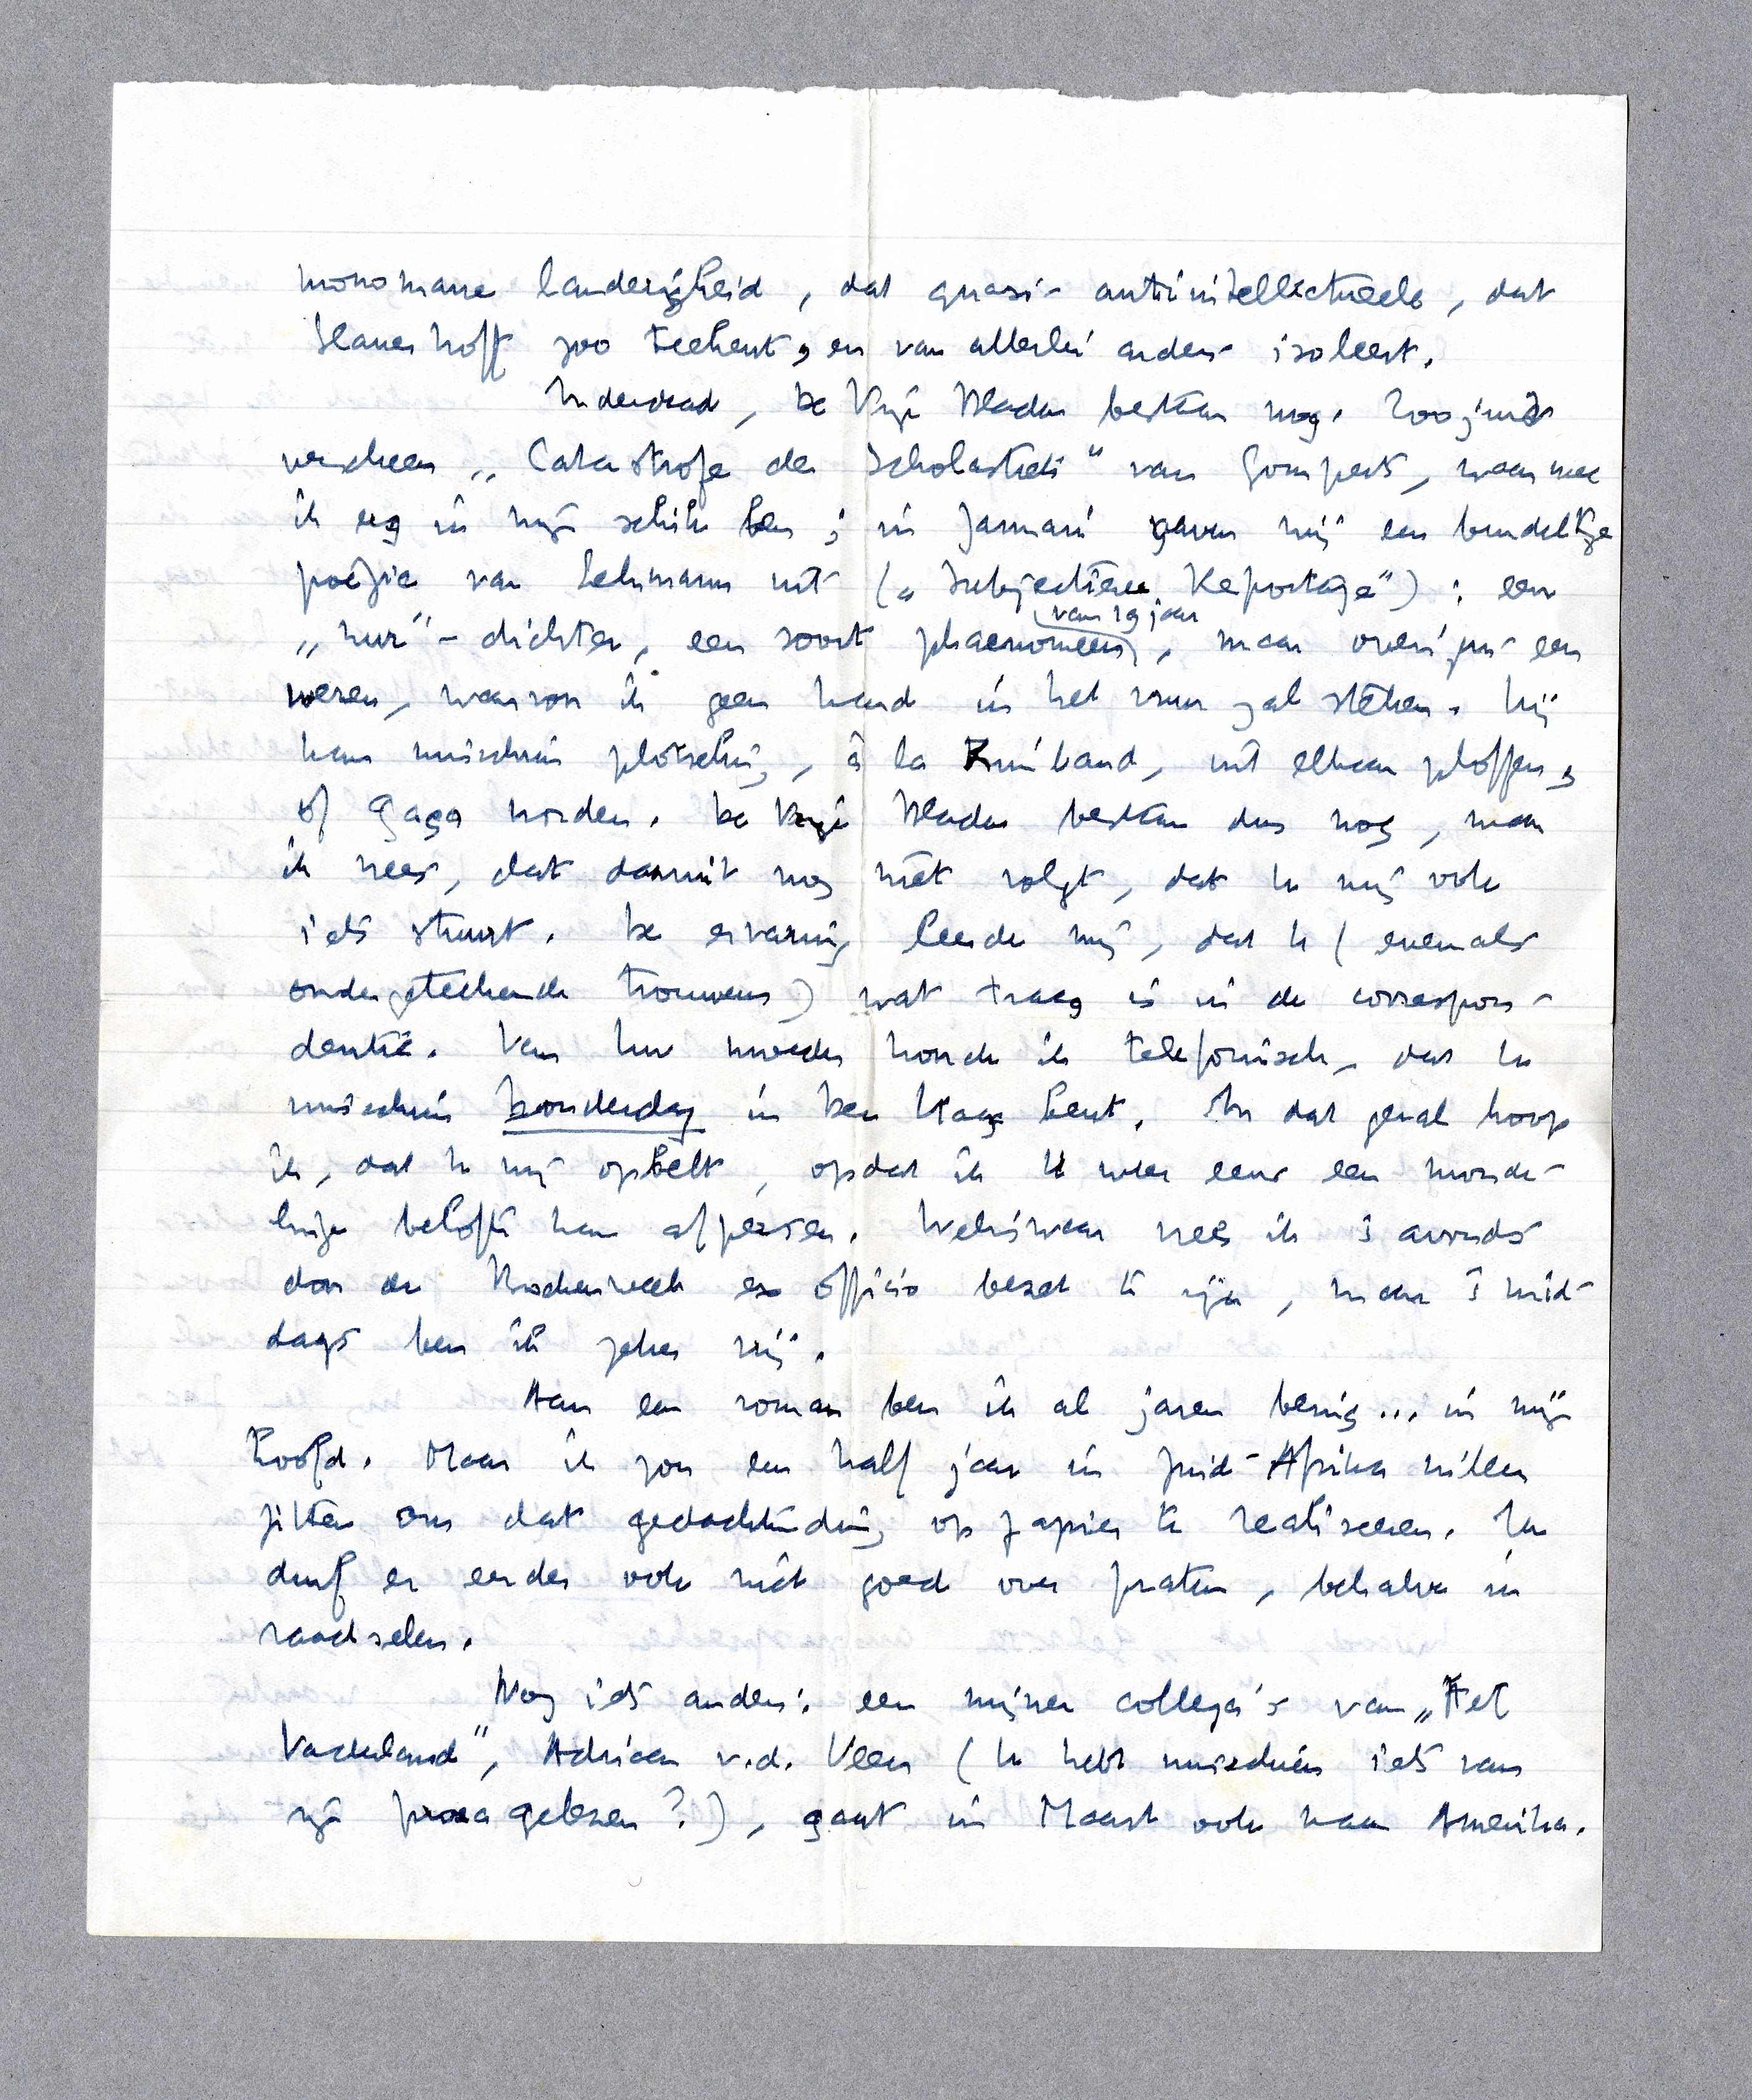 monomane landerigheid, dat quasi-antiintellectueele, dat
Slauerhoff zoo teekent, en van allerlei anders isoleert.
Inderdaad, De Vrije Bladen bestaan nog. Zoojuist
verscheen „Catastrofe der Scholastiek" van Gomperts, waarmee
ik erg in mijn schik ben; in Januari gaven wij een bundeltje
poëzie van Lehmann uit („Subjectieve Reportage"): een
„nur"-dichter, een soort phaenomeen, maar overigens een
van 19 jaar
wezen, waarvoor ik geen hand in het vuur zal steken. Hij
kan misschien plotseling, à la Rimbaud, uit elkaar ploffen,
of gaga worden. De Vrije Bladen bestaan dus nog, maar
ik vrees, dat daaruit nog niet volgt, dat U mij ook
iets stuurt. De ervaring leerde mij, dat U (evenals
ondergeteekende trouwens) wat traag is in de correspon-
dentie. Van Uw moeder hoorde ik telefonisch, dat U
misschien Donderdag in Den Haag bent. In dat geval hoop
ik, dat U mij opbelt, opdat ik U weer eens een monde-
linge belofte kan afpersen. Weliswaar vrees ik 's avonds
door de Boekenweek ex officio bezet te zijn, maar 's mid-
dags ben ik zeker vrij.
Aan een roman ben ik al jaren bezig... in mijn
hoofd. Maar ik zou een half jaar in Zuid-Afrika willen
zitten om dat gedachtending op papier te realiseeren. Ik
durf er eerder ook niet goed over praten, behalve in
raadselen.
Nog iets anders: een mijner collega's van „Het
Vaderland", Adriaan v.d. Veen (U hebt misschien iets van
zijn proza gelezen?), gaat in Maart ook naar Amerika.